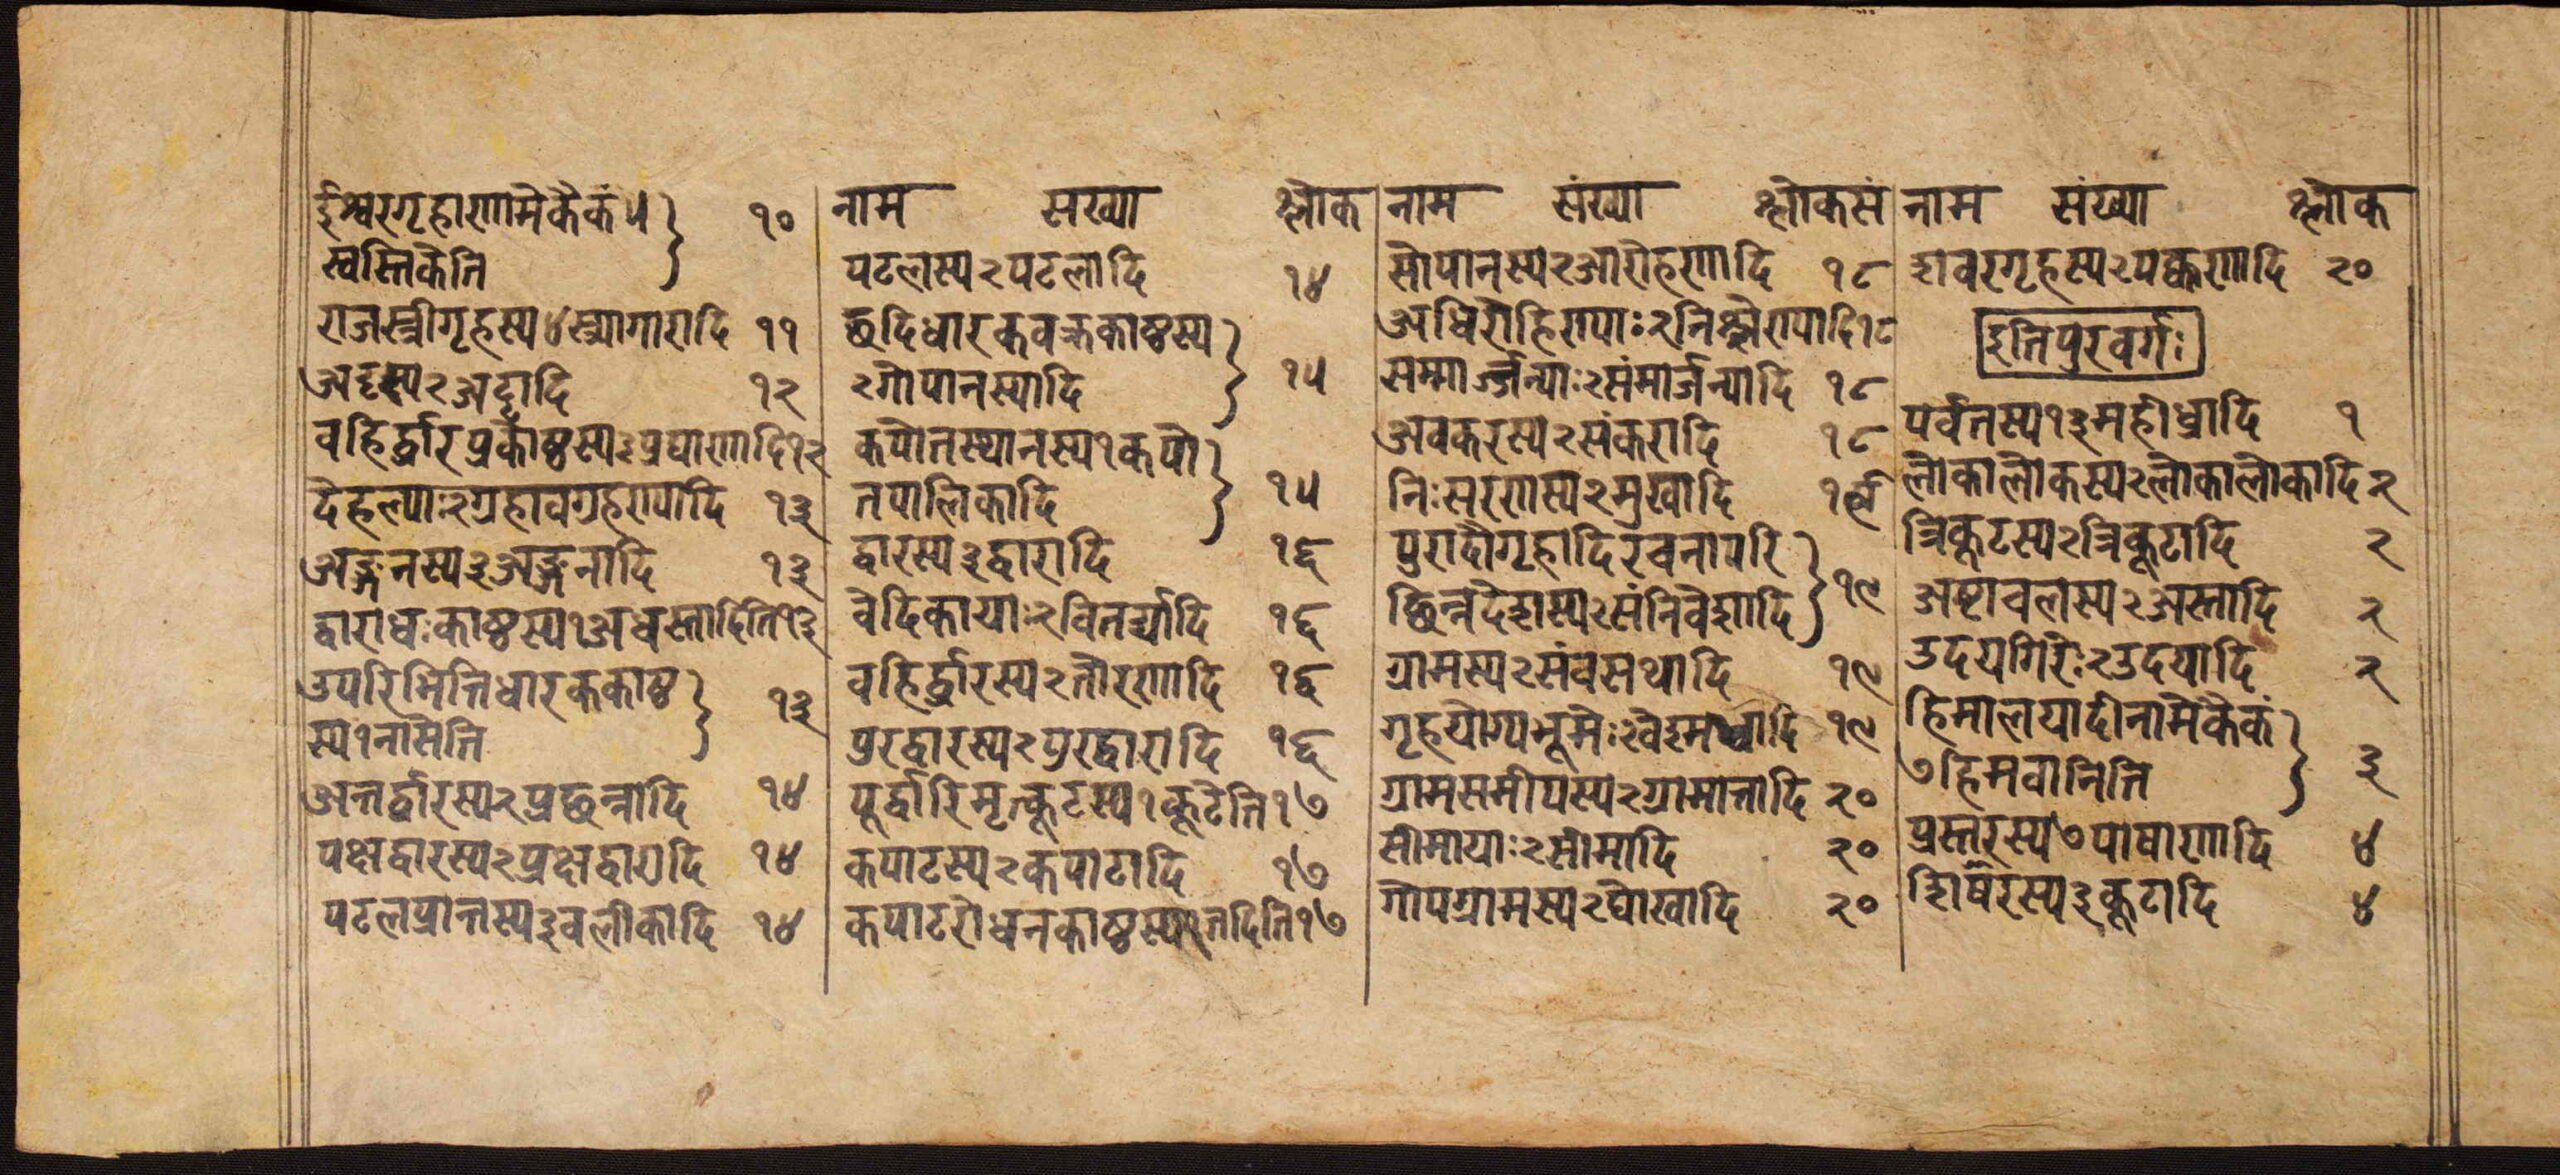 ईश्वरगृहाणामेकैकं ५ १०
स्वस्तिकेति
राजस्त्रीगृहस्य ४ स्त्र्यागारादि ११
अट्टस्य २ अट्टादि १२
वहिर्द्वारप्रकोष्ठस्य ३ प्रघाणादि १२
देहल्याः २ ग्रहावग्रहण्यादि १३
अङ्गनस्य ३ अङ्गनादि १३
द्वाराधःकाष्ठस्य १ अधस्तादिति १३
उपरिभित्तिधारककाष्ठ १३
स्य १ नासेति
अन्तर्द्वारस्य २ प्रछन्नादि १४
पक्षद्वारस्य २ प्रक्षद्वारादि १४
पटलप्रान्तस्य ३ वलीकादि १४
नाम सख्या श्लोक
पटलस्य २ पटलादि १४
छदिधारकवक्रकाष्ठस्य १५
२ गोपानस्यादि
कपोतस्थानस्य १ कपो १५
तपालिकादि
द्वारस्य ३ द्वारादि १६
वेदिकायाः २ वितर्द्यादि १६
वहिर्द्वारस्य २ तोरणादि १६
पुरद्वारस्य २ पुरद्वारादि १६
पूर्द्वारिमृत्कूटस्य १ कूटेति १७
कपाटस्य २ कपाटादि १७
कपाटरोधनकाष्ठस्य तदिति १७
नाम संख्या श्लोकसं
सोपानस्य २ आरोहणादि १८
अधिरोहिण्याः २ निश्श्रेण्यादि १८
सम्मार्ज्जन्याः २ संमार्जन्यादि १८
अवकरस्य २ संकरादि १८
निःसरणस्य २ मुखादि १९
पुरादौगृहादिरचनापरि १९
छिन्नदेशस्य २ संनिवेशादि
ग्रामस्य २ संवसथादि १९
गृहयोग्यभूमेः २ वेश्मभ्वादि १९
ग्रामसमीपस्य २ ग्रामान्तादि २०
सीमायाः २ सीमादि २०
गोपग्रामस्य २ घोखादि २०
नाम संख्या श्लोक
शवरगृहस्य २ पक्कणादि २०
इति पुरवर्गः
पर्वतस्य १३ महीध्रादि १
लोकालोकस्य २ लोकालोकादि २
त्रिकूटस्य २ त्रिकूटादि २
अष्टाचलस्य २ अस्तादि २
उदयगिरेः २ उदयादि २
हिमालयादीनामेकैकं ३
७ हिमवानिति
प्रस्तरस्य ७ पाषाणादि ४
शिषरस्य ३ कूटादि ४